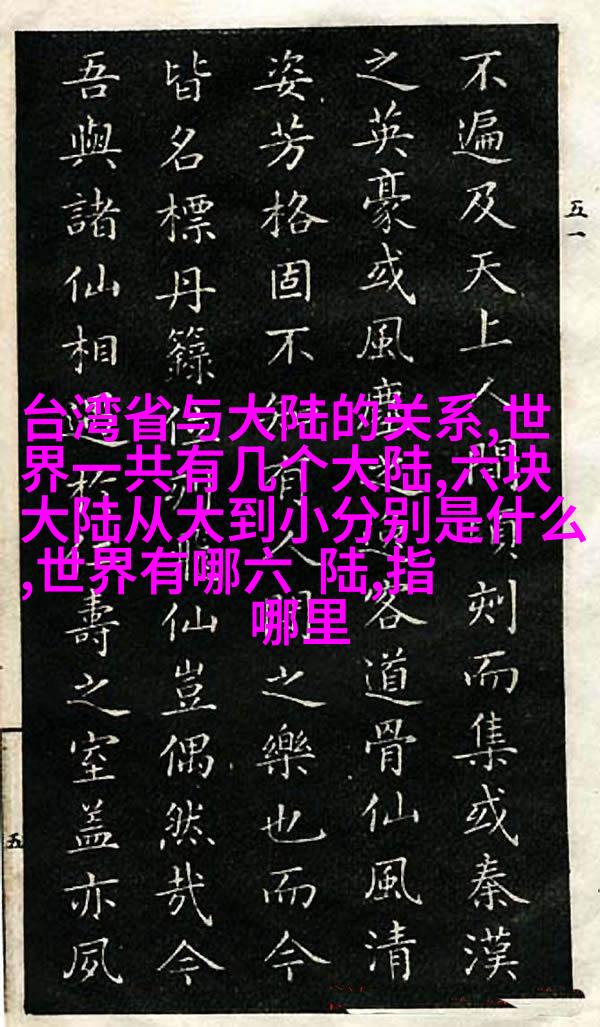 不遍及天上人間頃刻而集或秦漢
之英豪或風塵之逸客道骨仙風清
姿芳格固不殊有人間之樂也而今
皆名標丹籙位列飛仙豈偶然哉今
吾與諸仙相遇於仁壽之室蓋亦夙
五一
五
台湾省与大陆的关系,世
界一共有几个大陆,六块
大陆从大到小分别是什么
,世界有哪六 陆,指
哪里